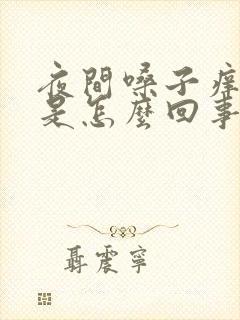 夜間嗓子痒
是怎麼回事
聶震寧